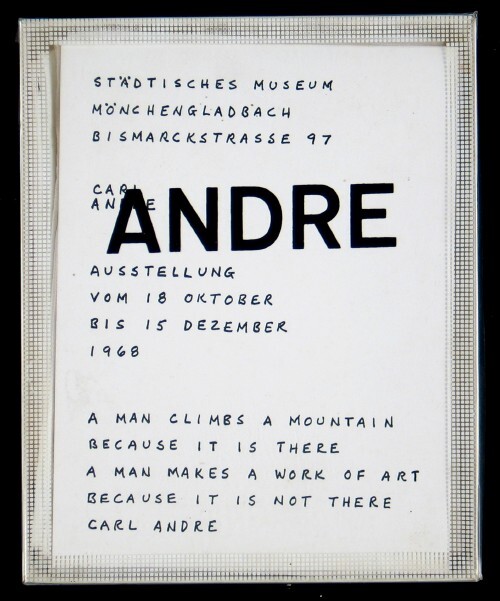 STÄDTISCHES MUSEUM
MÖNCHENGLADBACH
BISMARCKSTRASSE 97
CARL
ANDRE
ANDRE
AUSSTELLUNG
VOM 18 OKTOBER
BIS 15 DEZEMBER
1968
A MAN CLIMBS A MOUNTAIN
BECAUSE IT IS THERE
A MAN MAKES A WORK OF ART
BECAUSE IT IS NOT THERE
CARL ANDRE